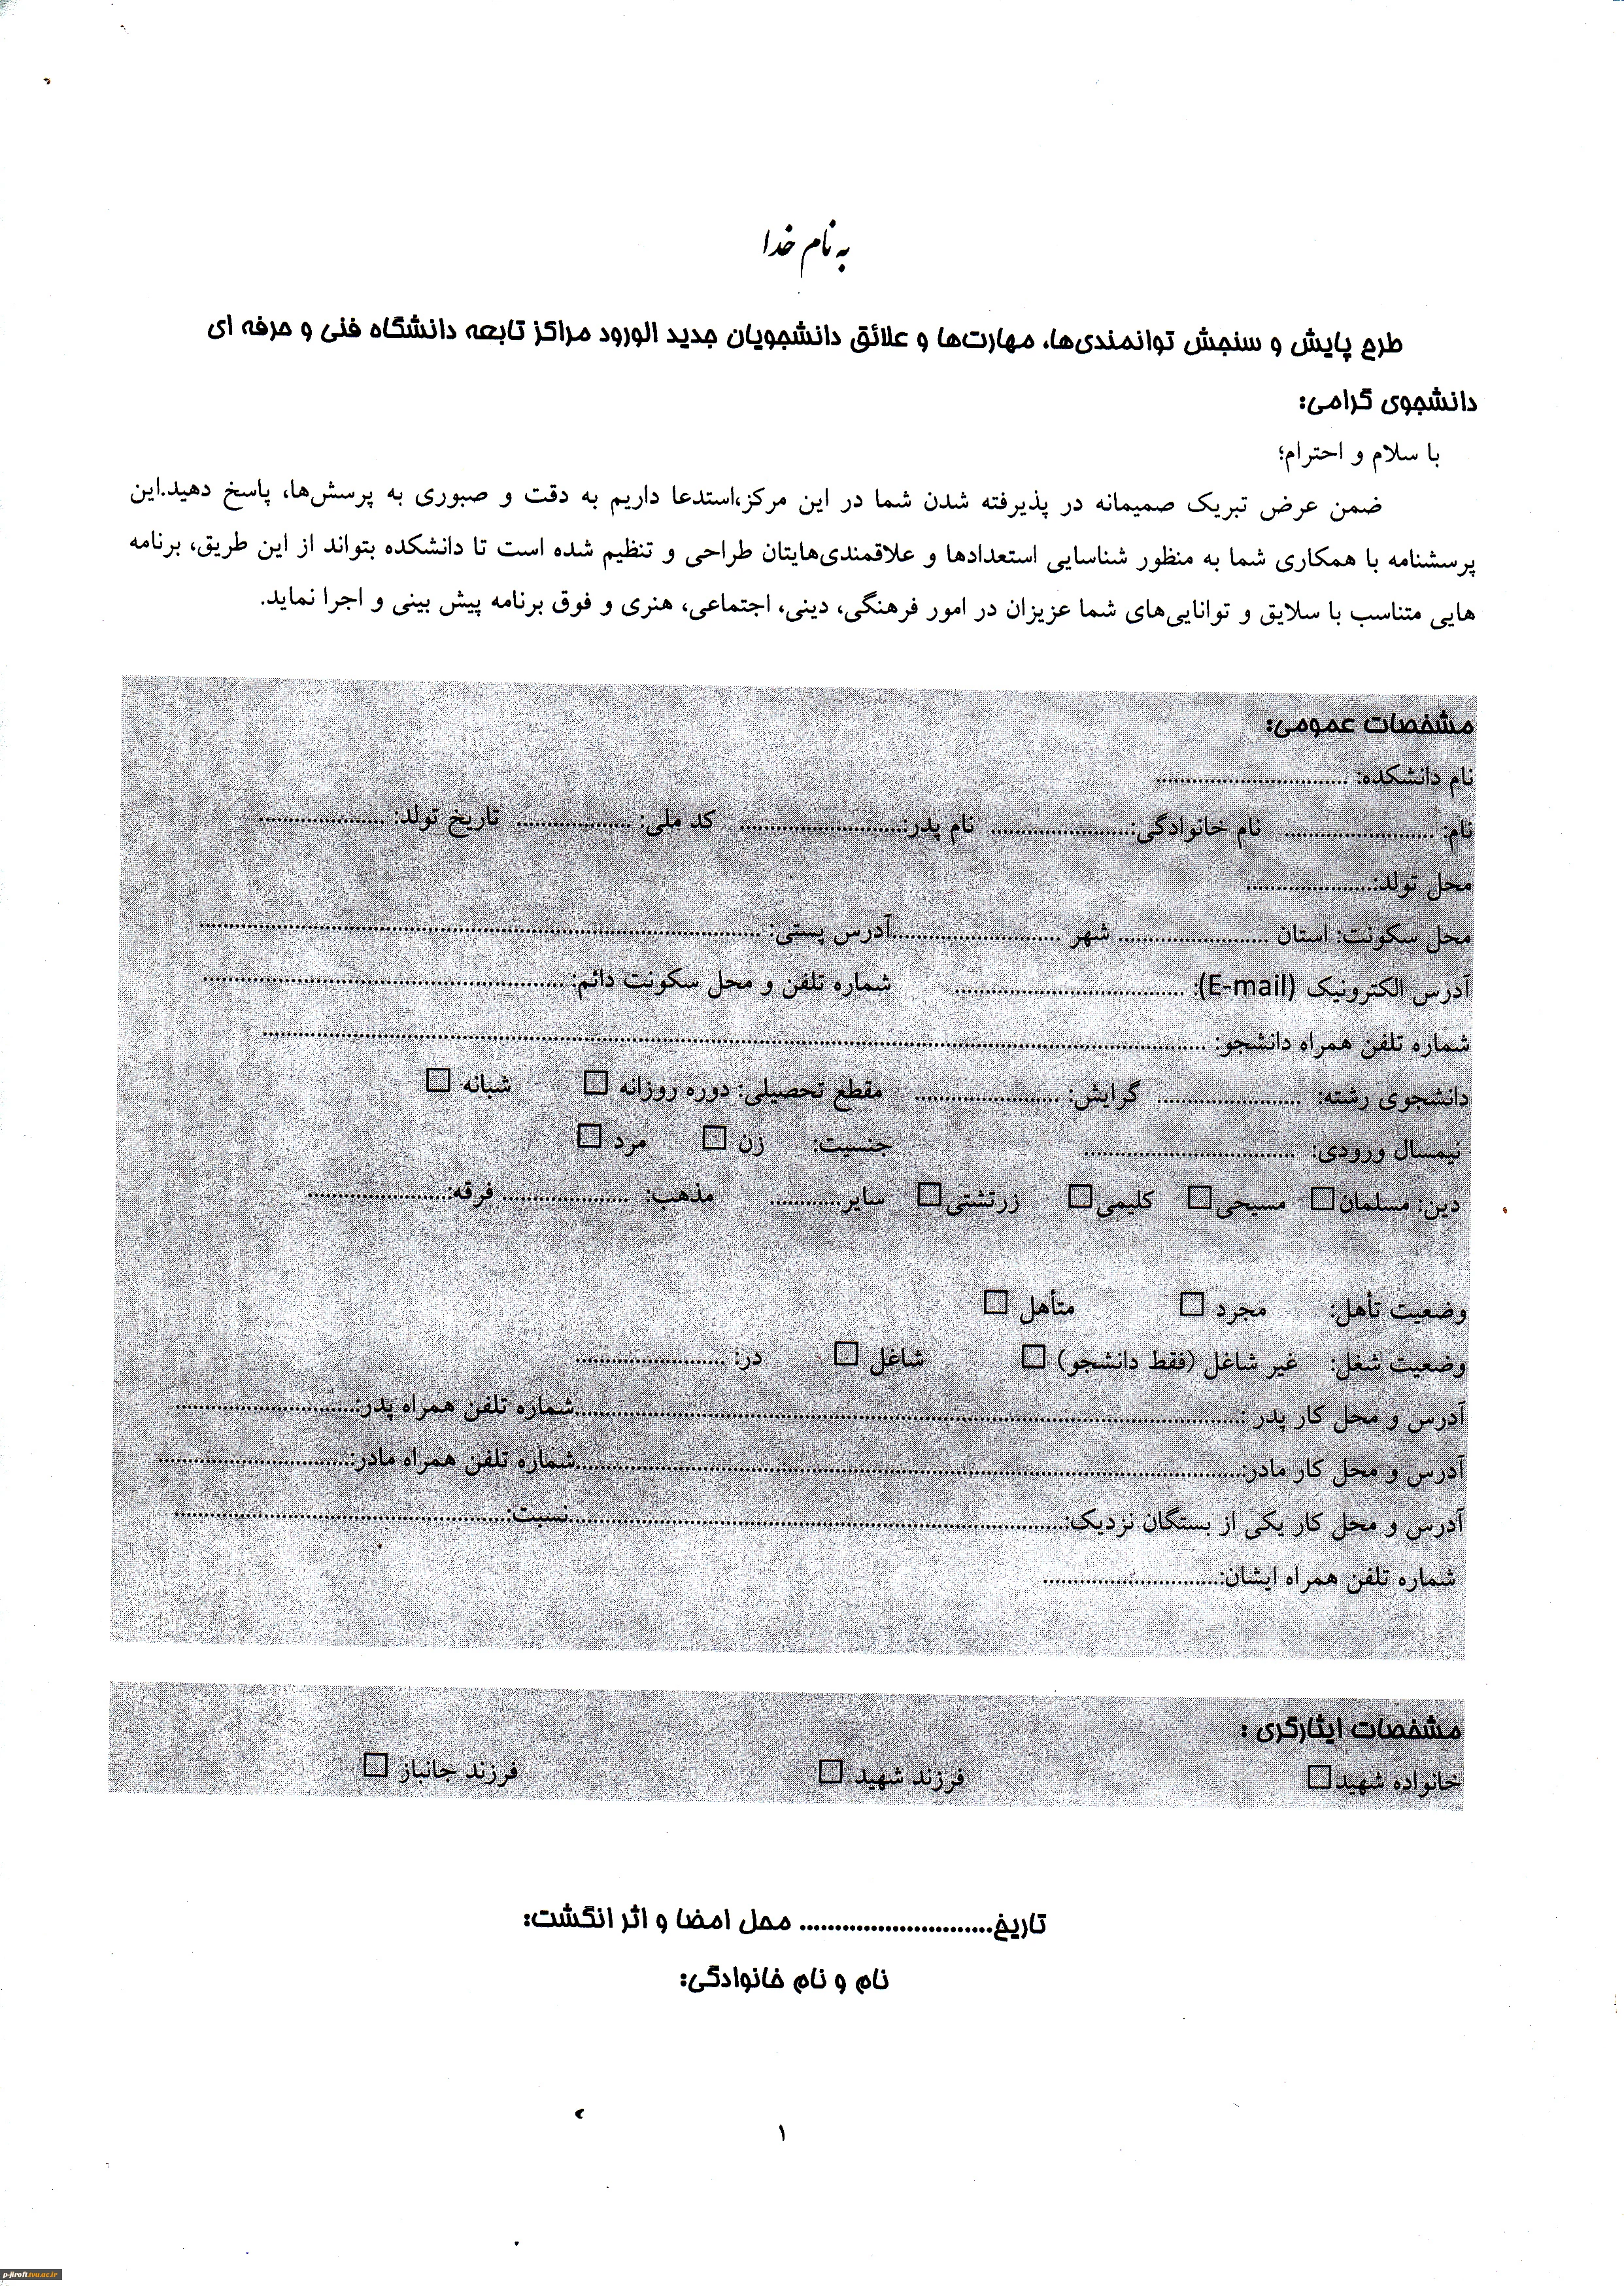 به نام خدا
طرح پایش و سنجش توانمندی‌ها، مهارت‌ها و علائق دانشجویان جدید الورود مراکز تابعه دانشگاه فنی و حرفه ای
دانشجوی گرامی:
با سلام و احترام؛
ضمن عرض تبریک صمیمانه در پذیرفته شدن شما در این مرکز،استدعا داریم به دقت و صبوری به پرسش‌ها، پاسخ دهید.این
پرسشنامه با همکاری شما به منظور شناسایی استعدادها و علاقمندی‌هایتان طراحی و تنظیم شده است تا دانشکده بتواند از این طریق، برنامه
هایی متناسب با سلایق و توانایی‌های شما عزیزان در امور فرهنگی، دینی، اجتماعی، هنری و فوق برنامه پیش بینی و اجرا نماید.
مشخصات عمومی:
نام دانشکده: ..............................
نام: ........................ نام خانوادگی:....................... نام پدر:.......................... کد ملی: .................. تاریخ تولد: ....................
محل تولد:....................
محل سکونت: استان ........................ شهر ...........................آدرس پستی: ..........................................................................................
آدرس الکترونیک (E-mail): ..................................... شماره تلفن و محل سکونت دائم: ..........................................................
شماره تلفن همراه دانشجو: ........................................................................................................................................................
دانشجوی رشته: ....................... گرایش: ....................... مقطع تحصیلی: دوره روزانه □ شبانه □
نیمسال ورودی: .................................. جنسیت: زن □ مرد □
دین: مسلمان□ مسیحی□ کلیمی□ زرتشتی□ سایر........... مذهب: .................... فرقه:......................
وضعیت تأهل: مجرد □ متأهل □
وضعیت شغل: غیر شاغل (فقط دانشجو) □ شاغل □ در: ........................
آدرس و محل کار پدر :...........................................................................................................شماره تلفن همراه پدر:.............................
آدرس و محل کار مادر:...........................................................................................................شماره تلفن همراه مادر:..............................
آدرس و محل کار یکی از بستگان نزدیک:................................................................................نسبت:.....................................................
شماره تلفن همراه ایشان:............................
مشخصات ایثارگری :
خانواده شهید□ فرزند شهید □ فرزند جانباز □
تاریخ........................... محل امضا و اثر انگشت:
نام و نام خانوادگی:
۱
p-jiroft.tvu.ac.ir